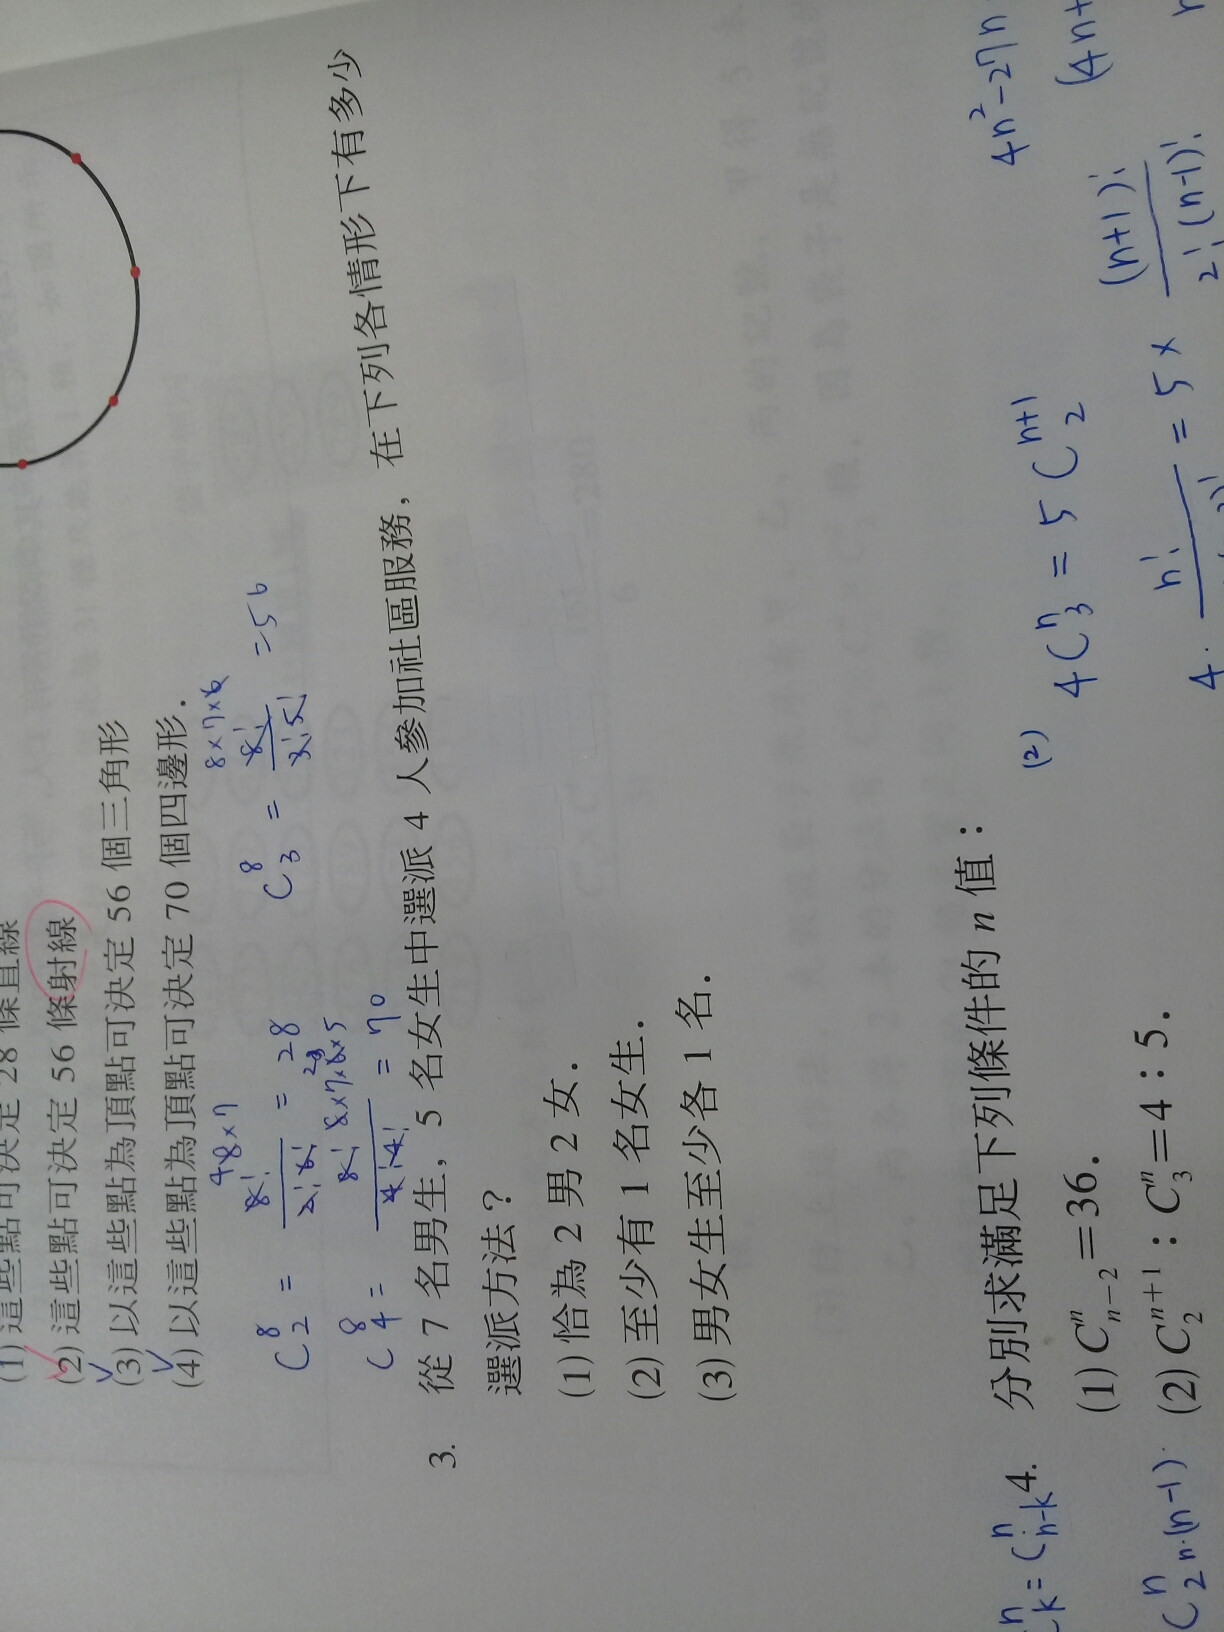 (1) 這些點可決定 28 條直線
(2) 這些點可決定 56 條射線
(3) 以這些點為頂點可決定 56 個三角形
(4) 以這些點為頂點可決定 70 個四邊形.
C⁸₂ = 8!/2!6! = 28
4 8×7
C⁸₃ = 8!/3!5! = 56
8×7×6
C⁸₄ = 8!/4!4! = 70
8×7×6×5
3. 從 7 名男生, 5 名女生中選派 4 人參加社區服務, 在下列各情形下有多少
選派方法?
(1) 恰為 2 男 2 女.
(2) 至少有 1 名女生.
(3) 男女生至少各 1 名.
4. 分別求滿足下列條件的 n 值:
(1) Cⁿₙ₋₂=36.
(2) Cⁿ⁺¹₂ : Cⁿ₃=4 : 5.
= Cⁿₙ₋ₖ
Cⁿ₂ n·(n-1)
(2) 4Cⁿ₃ = 5Cⁿ⁺¹₂
n! = 5 × (n+1)!/2!(n-1)!
4n²-27n
(4n+